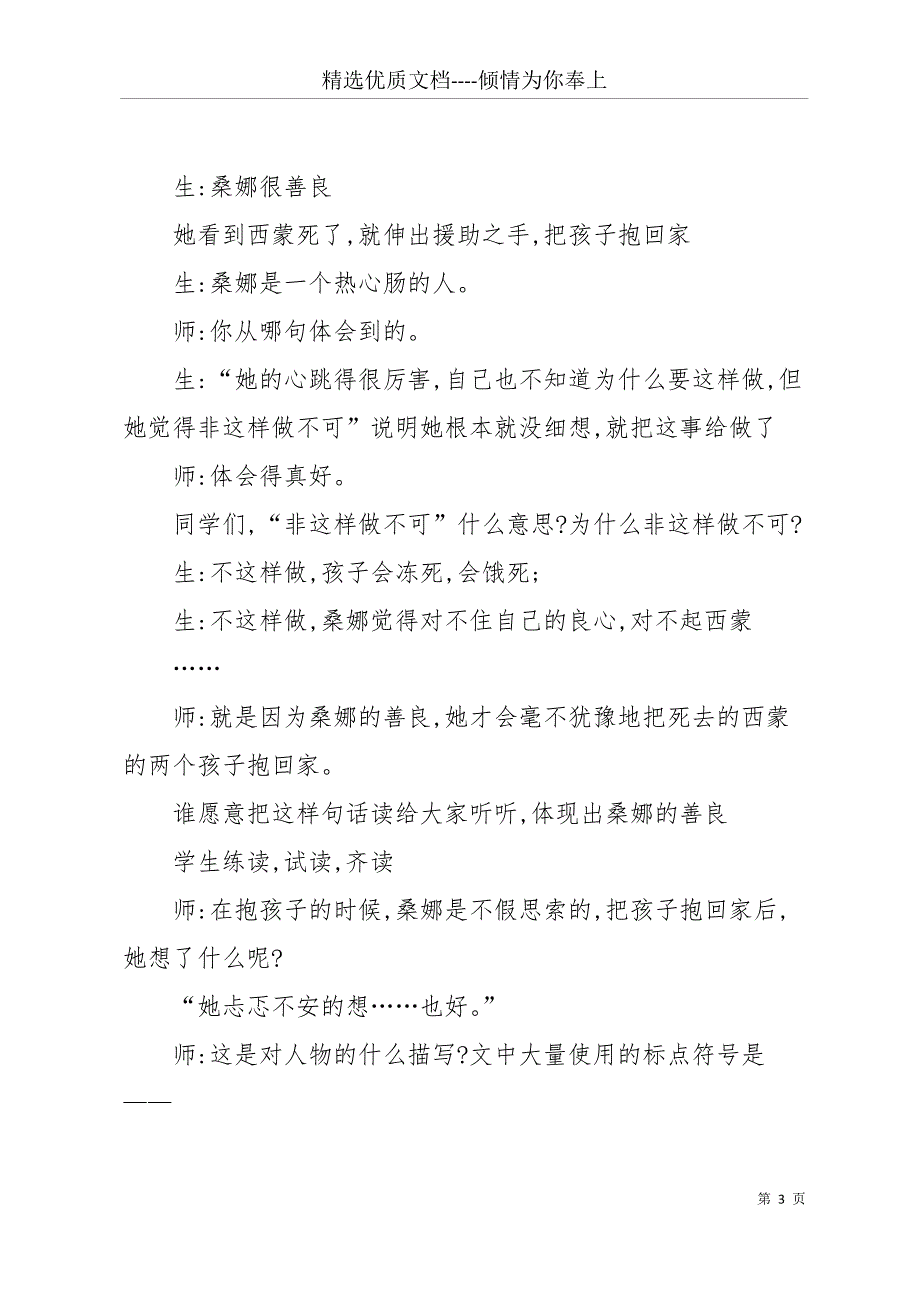 精选优质文档----倾情为你奉上
生:桑娜很善良
她看到西蒙死了,就伸出援助之手,把孩子抱回家
生:桑娜是一个热心肠的人。
师:你从哪句体会到的。
生:“她的心跳得很厉害,自己也不知道为什么要这样做,但
她觉得非这样做不可”说明她根本就没细想,就把这事给做了
师:体会得真好。
同学们,“非这样做不可”什么意思?为什么非这样做不可?
生:不这样做,孩子会冻死,会饿死;
生:不这样做,桑娜觉得对不住自己的良心,对不起西蒙
……
师:就是因为桑娜的善良,她才会毫不犹豫地把死去的西蒙
的两个孩子抱回家。
谁愿意把这样句话读给大家听听,体现出桑娜的善良
学生练读,试读,齐读
师:在抱孩子的时候,桑娜是不假思索的,把孩子抱回家后,
她想了什么呢?
“她忐忑不安的想……也好。”
师:这是对人物的什么描写?文中大量使用的标点符号是
——
第 3 页